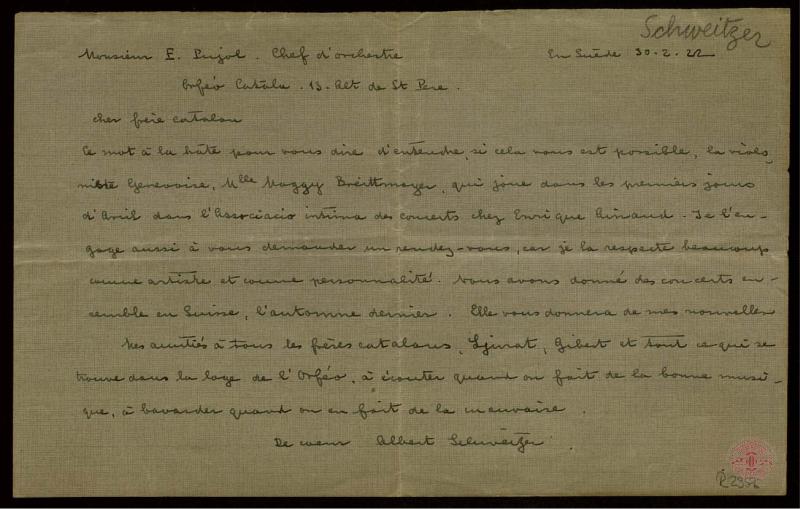 Schweitzer
Monsieur E. Pujol. Chef d'orchestre En Suède 30-2-22
Orfeó Catala. 13. Alt de St Pere.
cher frère catalan
Ce mot à la hâte pour vous dire d'entendre, si cela vous est possible, la violo-
niste Genevoise, Mlle Maggy Breittmayer, qui joue dans les premiers jours
d'Avril dans l'Associacio intima des concerts chez Enrique Ainaud. Je l'en-
gage aussi à vous demander un rendez-vous, car je la respecte beaucoup
comme artiste et comme personnalité. Nous avons donné des concerts en-
semble en Suisse, l'automne dernier. Elle vous donnera de mes nouvelles
Mes amitiés à tous les frères catalans, Gibert et tout ce qui se
trouve dans la loge de l'Orféo, à écouter quand on fait de la bonne musi-
que, à bavarder quand on en fait de la mauvaise.
De coeur Albert Schweitzer.
R 2356